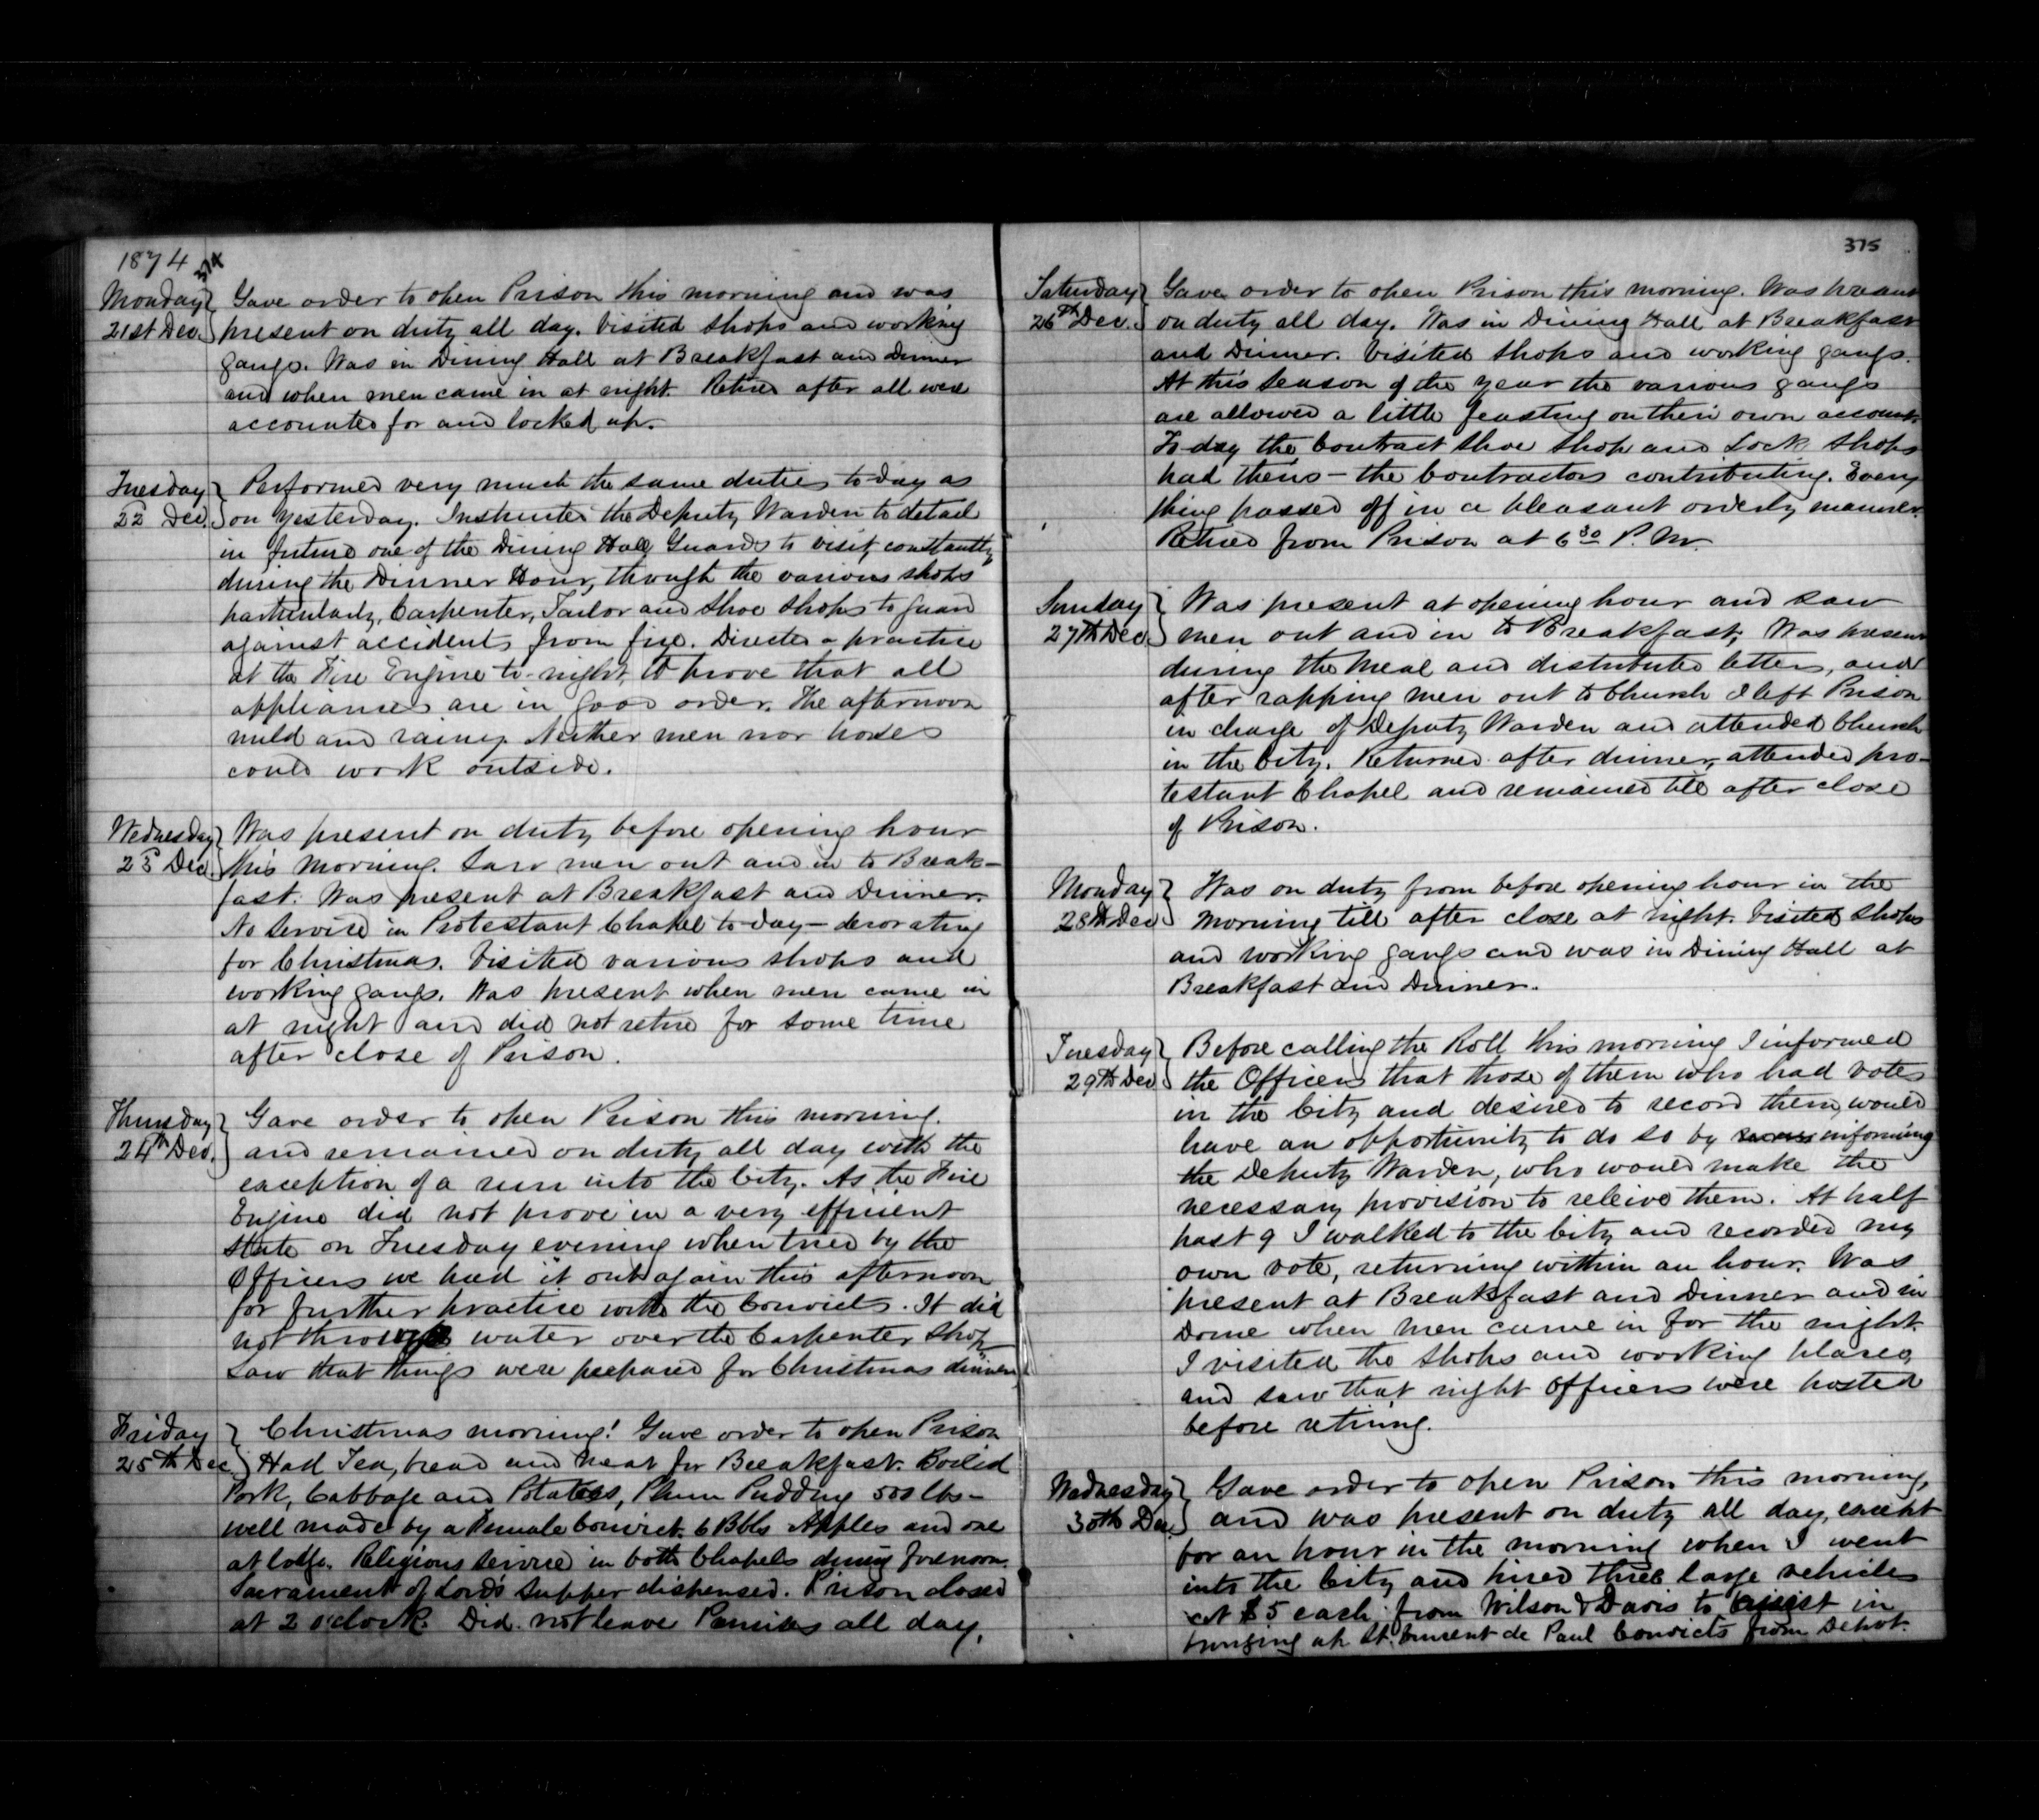 1874
374
Monday
21st Dec.
Gave order to open Prison this morning and was
present on duty all day. Visited Shops and working
gangs. Was in Dining Hall at Breakfast and Dinner
and when men came in at night. Retired after all were
accounted for and locked up.
Tuesday
22d Dec.
Performed very much the same duties to-day as
on yesterday. Instructed the Deputy Warden to detail
in future one of the Dining Hall Guards to visit, constantly,
during the Dinner Hour, through the various shops
particularly, Carpenter, Tailor and Shoe Shops to guard
against accidents from fire. Directed a practice
at the Fire Engine to-night, to prove that all
appliances are in good order. The afternoon
mild and rainy. Neither men nor horses
could work outside.
Wednesday
23d Dec.
Was present on duty before opening hour
this morning. Saw men out and in to Break-
fast. Was present at Breakfast and Dinner.
No Service in Protestant Chapel to-day - decorating
for Christmas. Visited various shops and
working gangs. Was present when men came in
at night and did not retire for some time
after close of Prison.
Thursday
24th Dec.
Gave order to open Prison this morning.
and remained on duty all day with the
exception of a run into the City. As the Fire
Engine did not prove in a very efficient
state on Tuesday evening when tried by the
Officers we had it out again this afternoon
for further practice with the Convicts. It did
not throw water over the Carpenter Shop
Saw that things were prepared for Christmas dinner,
Friday
25th Dec.
Christmas morning! Gave order to open Prison
Had Tea, bread and meat for Breakfast. Boiled
Pork, Cabbage and Potatoes, Plum Pudding 500 lbs -
well made by a Female Convict. 6 Bbls Apples and one
at lodge. Religious Service in both Chapels during forenoon.
Sacrament of Lord's Supper dispensed. Prison closed
at 2 o'clock. Did not leave Premises all day.
375
Saturday
26th Dec.
Gave order to open Prison this morning. Was present
on duty all day. Was in Dining Hall at Breakfast
and Dinner. Visited Shops and working gangs.
At this Season of the year the various gangs
are allowed a little feasting on their own account.
To-day the Contract Shoe Shop and Lock Shops
had theirs - the Contractors contributing. Every
thing passed off in a pleasant orderly manner.
Retired from Prison at 6 30 P. M.
Sunday
27th Dec.
Was present at opening hour and saw
men out and in to Breakfast, Was present
during the meal and distributed letters, and
after rapping men out to Church I left Prison
in charge of Deputy Warden and attended Church
in the City. Returned after dinner, attended pro-
testant Chapel and remained till after close
of Prison.
Monday
28th Dec
Was on duty from before opening hour in the
morning till after close at night. Visited Shops
and working gangs and was in Dining Hall at
Breakfast and Dinner.
Tuesday
29th Dec
Before calling the Roll this morning I informed
the Officers that those of them who had votes
in the City and desired to record them, would
have an opportunity to do so by informing
the Deputy Warden, who would make the
necessary provision to releive them. At half
past 9 I walked to the City and recorded my
own vote, returning within an hour. Was
present at Breakfast and Dinner and in
Dome when men came in for the night.
I visited the Shops and working places,
and saw that night Officers were posted
before retiring.
Wednesday
30th Dec.
Gave order to open Prison this morning,
and was present on duty all day, except
for an hour in the morning when I went
into the City and hired three large vehicles
at $5 each, from Wilson & Davis to assist in
bringing up St. Vincent de Paul Convicts from Depot.